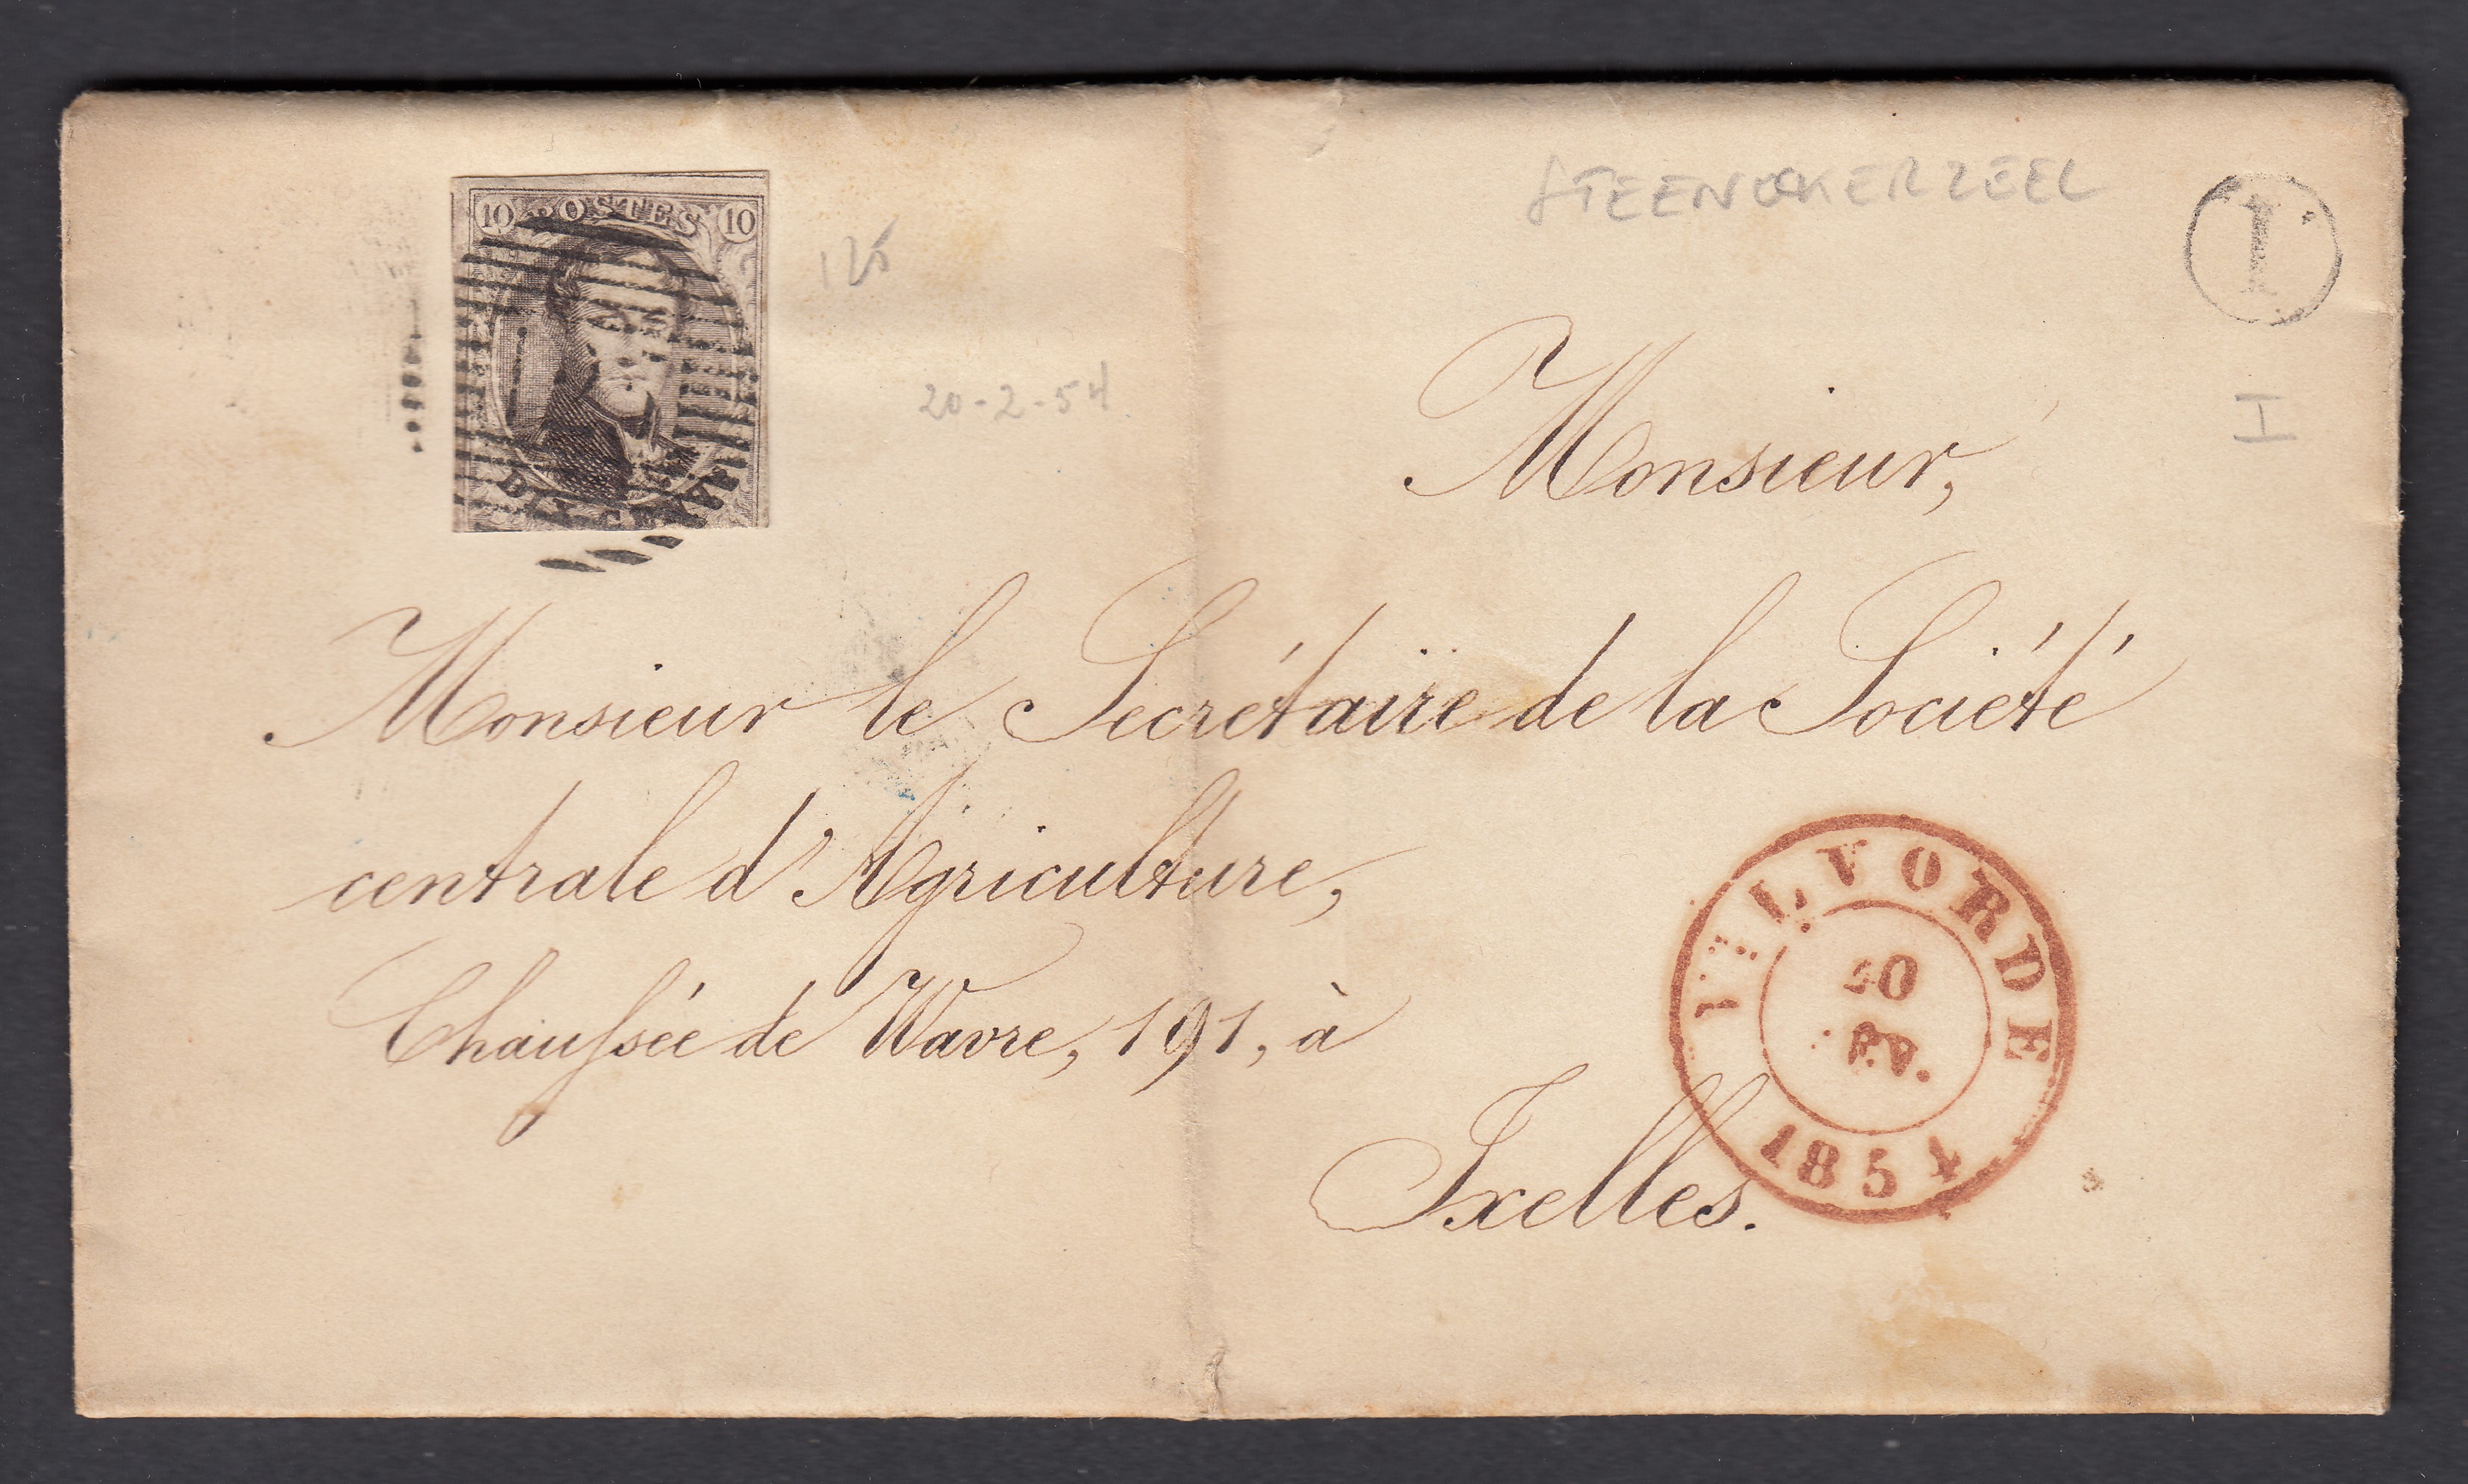 10 POSTES 10
DIX CENTS
125
20-2-54
STEENOKERZEEL
I
I
Monsieur,
Monsieur le Secrétaire de la Société
centrale d'Agriculture,
Chaussée de Wavre, 191, à
Ixelles.
VILVORDE
20
FEV.
1854